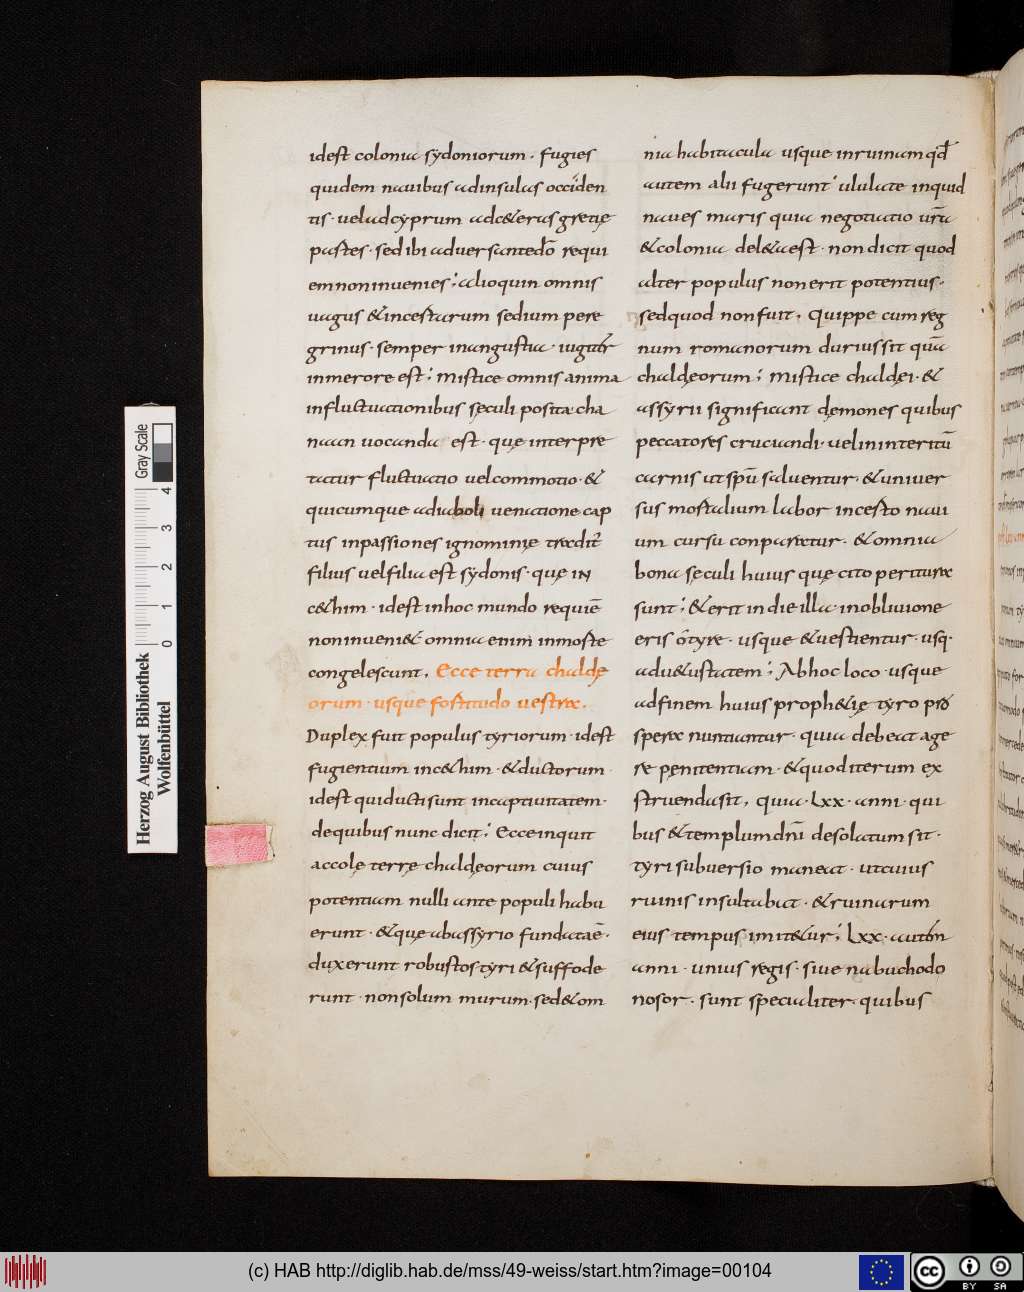 idest colonia sydoniorum. fugies
quidem nauibus adinsulas occiden
tis· uel adcyprum adc&eras gretię
partes· sed ibi aduersantedō requi
emnoninuenies; alioquin omnis
uagus &incestarum sedium pere
grinus· semper inangustia· iugitēr
inmerore est; Mistice omnis anima
influctuationibus seculi posita· cha
naan uocanda est· quę interpre
tatur fluctuatio uelcommotio· &
quicumque adiaboli uenatione cap
tus inpassiones ignominię tradit̄
filius uelfilia est sydonis· quę in
c&him· idest inhoc mundo requiē
noninueni&· omnia enim inmorte
congelescunt. Ecce terra chaldę
orum· usque fortitudo uestra.
Duplex fuit populus tyriorum· idest
fugientium inc&him· &ductorum·
idest quiducti sunt incaptiuitatem·
dequibus nunc dicit; Ecceinquit
accolę terrę chaldęorum cuius
potentiam nulli ante populi habu
erunt· &quę abassyrio fundataē·
duxerunt robustos tyri &suffode
runt· nonsolum murum· sed&om
nia habitacula usque inruinam qd̄
autem alii fugerunt· ululate inquid
naues maris quia negotiatio ur̄a
&colonia del&aest· non dicit quod
alter populus nonerit potentius·
sedquod nonfuit. Quippe cum reg
num romanorum durius sit quā
chaldęorum; Mistice chaldęi· &
assyrii significant dęmones quibus
peccatores cruciandi· uelininteritū
carnis ut spū saluentur· &uniuer
sus mortalium labor incerto naui
um cursu conparatur· &omnia
bona seculi huius quę cito peritura
sunt; &erit in die illa· inobliuione
eris ō tyre· usque &uestientur· usq·
adu&ustatem; Abhoc loco· usque
adfinem huius proph&ię tyro pro
spera nuntiantur· quia debeat age
re penitentiam· &quod iterum ex
struenda sit. quia· Lxx· anni· qui
bus &templum dnī desolatum sit·
tyri subuersio maneat· ut cuius
ruinis insultabat· &ruinarum
eius tempus imit&ur; Lxx· autēm
anni· unius regis· siue nabuchodo
nosor· sunt specialiter· quibus
Gray Scale
0 1 2 3 4
Herzog August Bibliothek
Wolfenbüttel
(c) HAB http://diglib.hab.de/mss/49-weiss/start.htm?image=00104
cc BY SA